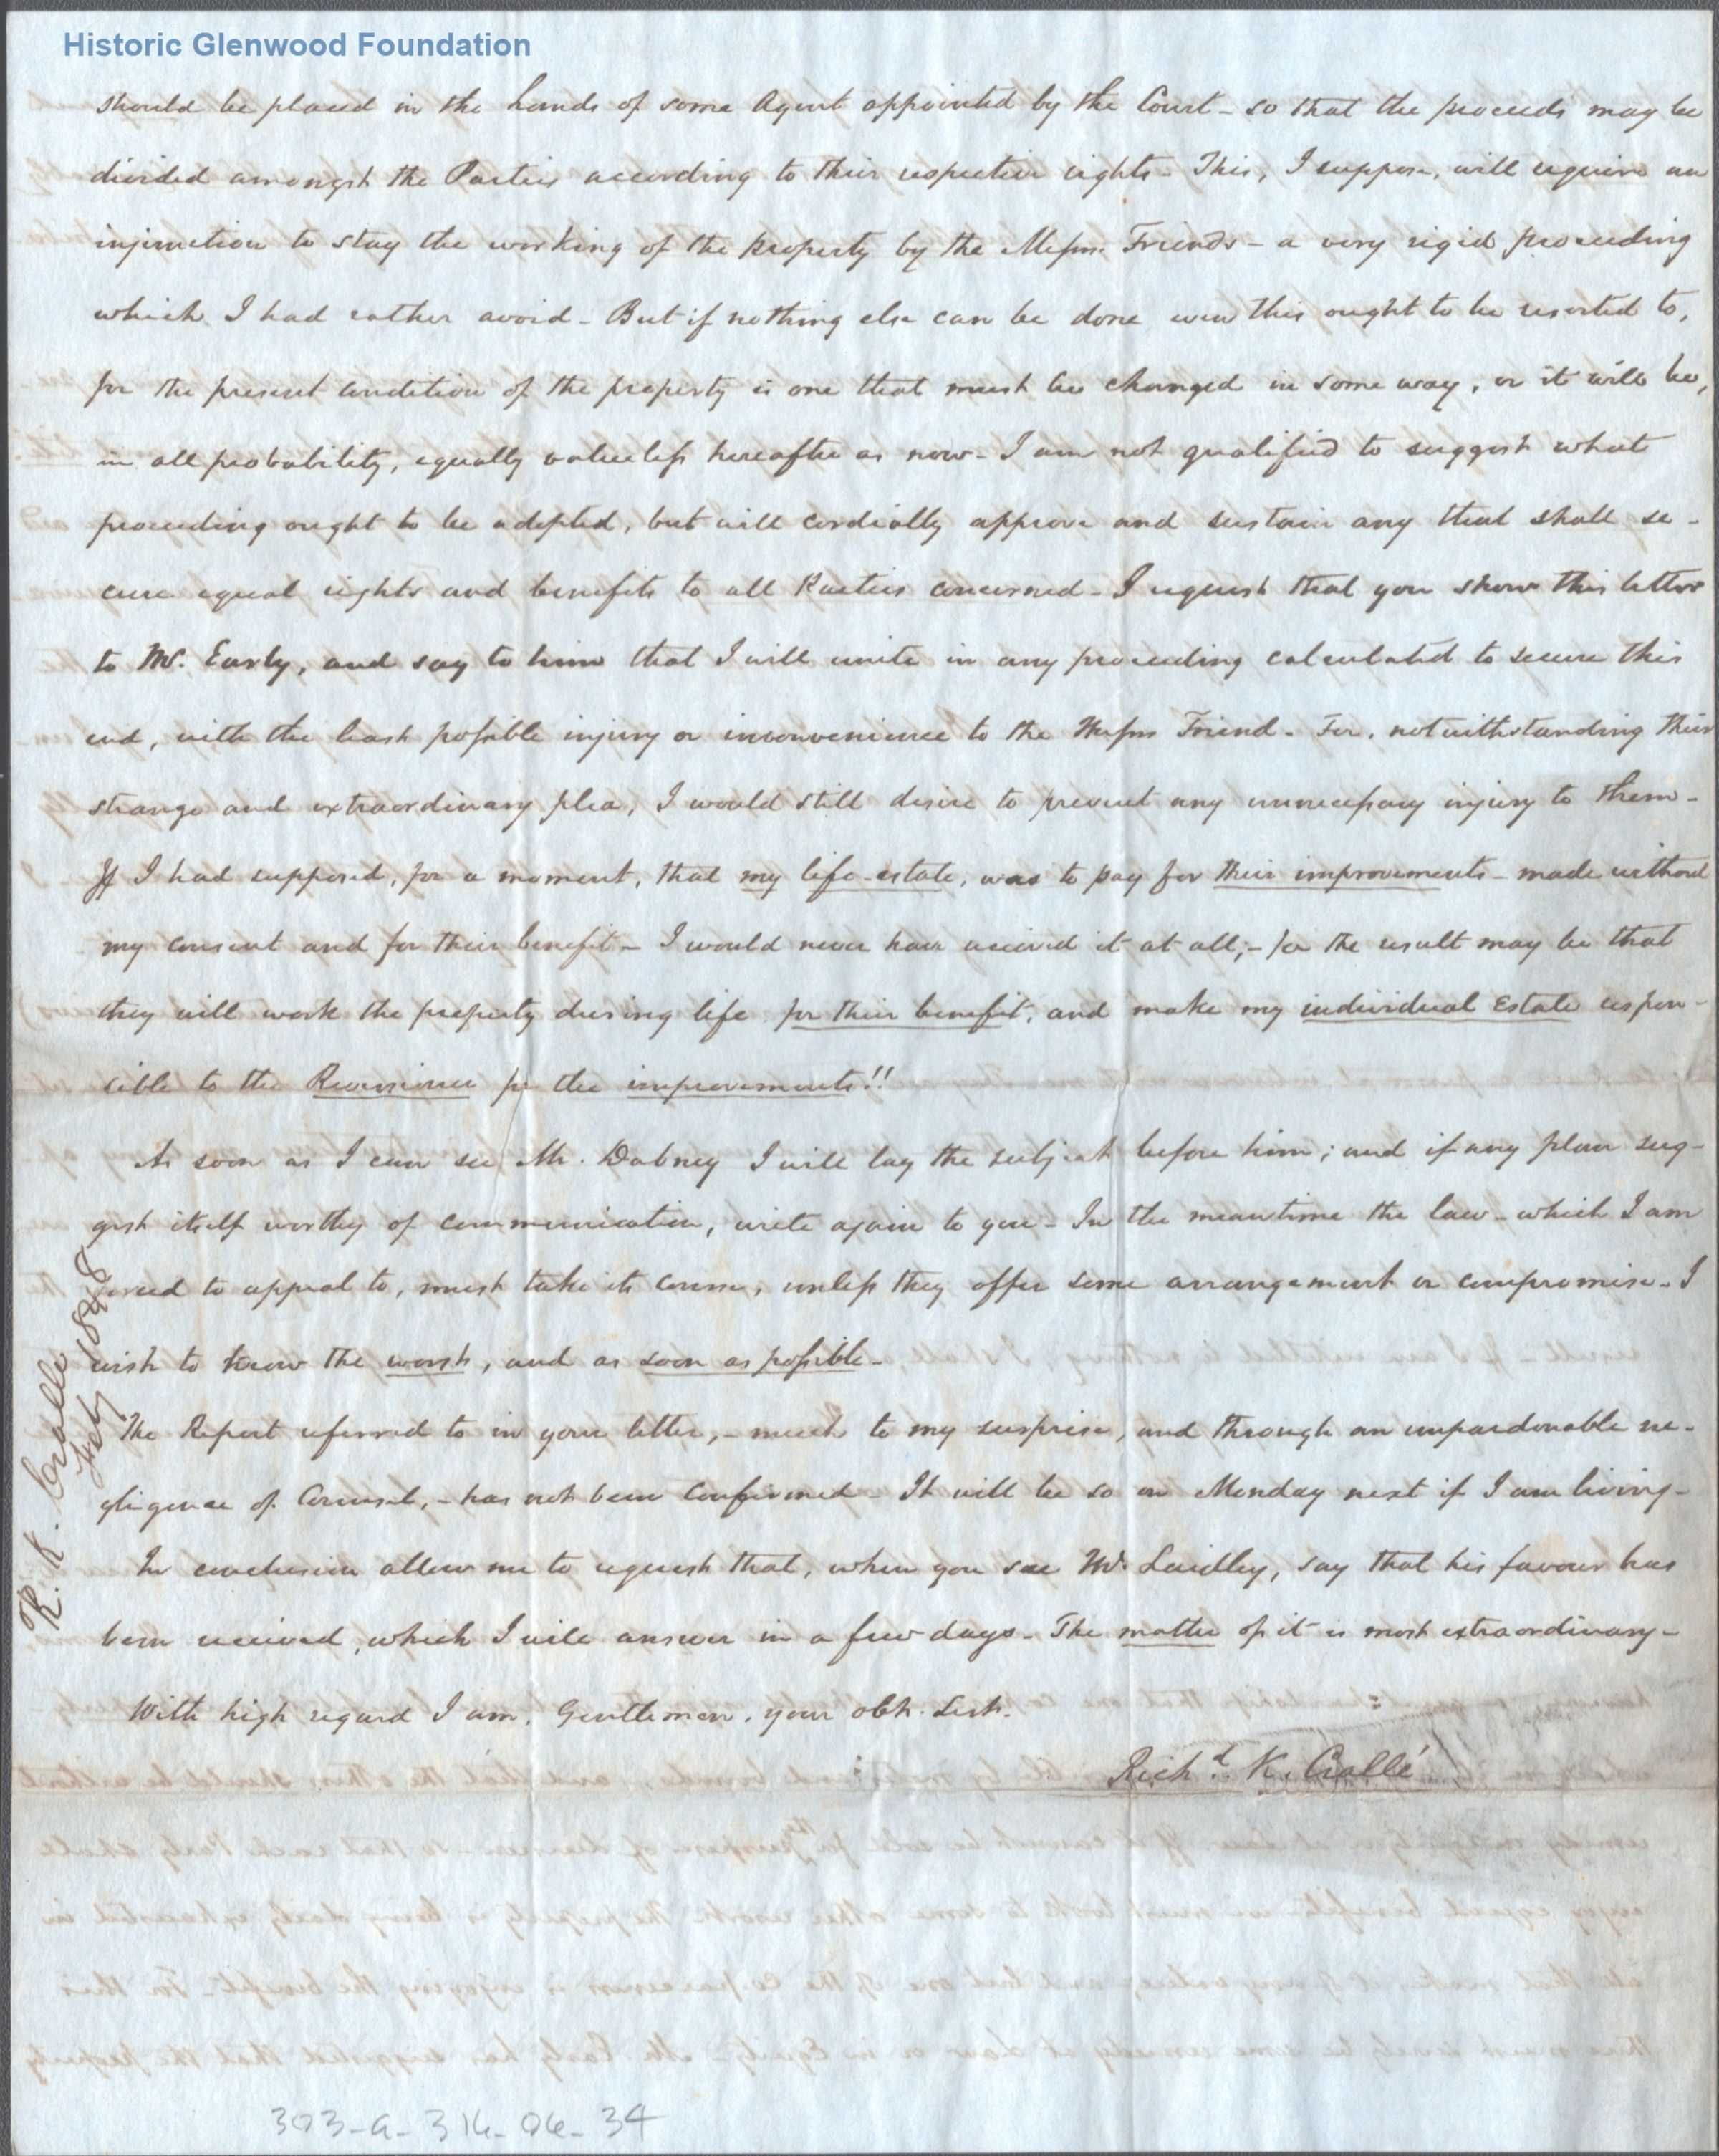 Historic Glenwood Foundation
should be placed in the hands of some Agent appointed by the Court - so that the proceeds may be
divided amongst the Parties according to their respective rights - This, I suppose, will require an
injunction to stay the working of the property by the Messrs. Friends - a very rigid proceeding
which I had rather avoid - But if nothing else can be done even this ought to be resorted to,
for the present condition of the property is one that must be changed in some way, or it will be,
in all probability, equally valueless hereafter as now - I am not qualified to suggest what
proceeding ought to be adopted, but will cordially approve and sustain any that shall se-
cure equal rights and benefits to all Parties concerned - I request that you show this letter
to Mr. Early, and say to him that I will unite in any proceeding calculated to secure this
end, with the least possible injury or inconvenience to the Messrs Friend - For, notwithstanding their
strange and extraordinary plea, I would still desire to prevent any unnecessary injury to them -
If I had supposed, for a moment, that my life-estate, was to pay for their improvements - made without
my consent and for their benefit - I would never have received it at all; - for the result may be that
they will work the property during life for their benefit, and make my individual Estate respon-
cible to the Reversioner for the improvements!!
As soon as I can see Mr. Dabney I will lay the subject before him; and if any plan sug-
gest itself worthy of communication, write again to you - In the meantime the law - which I am
forced to appeal to, must take its course, unless they offer some arrangement or compromise - I
wish to know the worst, and as soon as possible -
The Report referred to in your letter, - much to my surprise, and through an unpardonable ne-
gligence of Counsel, - has not been confirmed - It will be so on Monday next if I am living -
In conclusion allow me to request that, when you see Mr. Laidley, say that his favour has
been received, which I will answer in a few days - The matter of it is most extraordinary -
With high regard I am, Gentlemen, your obt. Sert.
Richd. K. Crallé
R. K. Crallé
July 1848
303-a-316-06-34